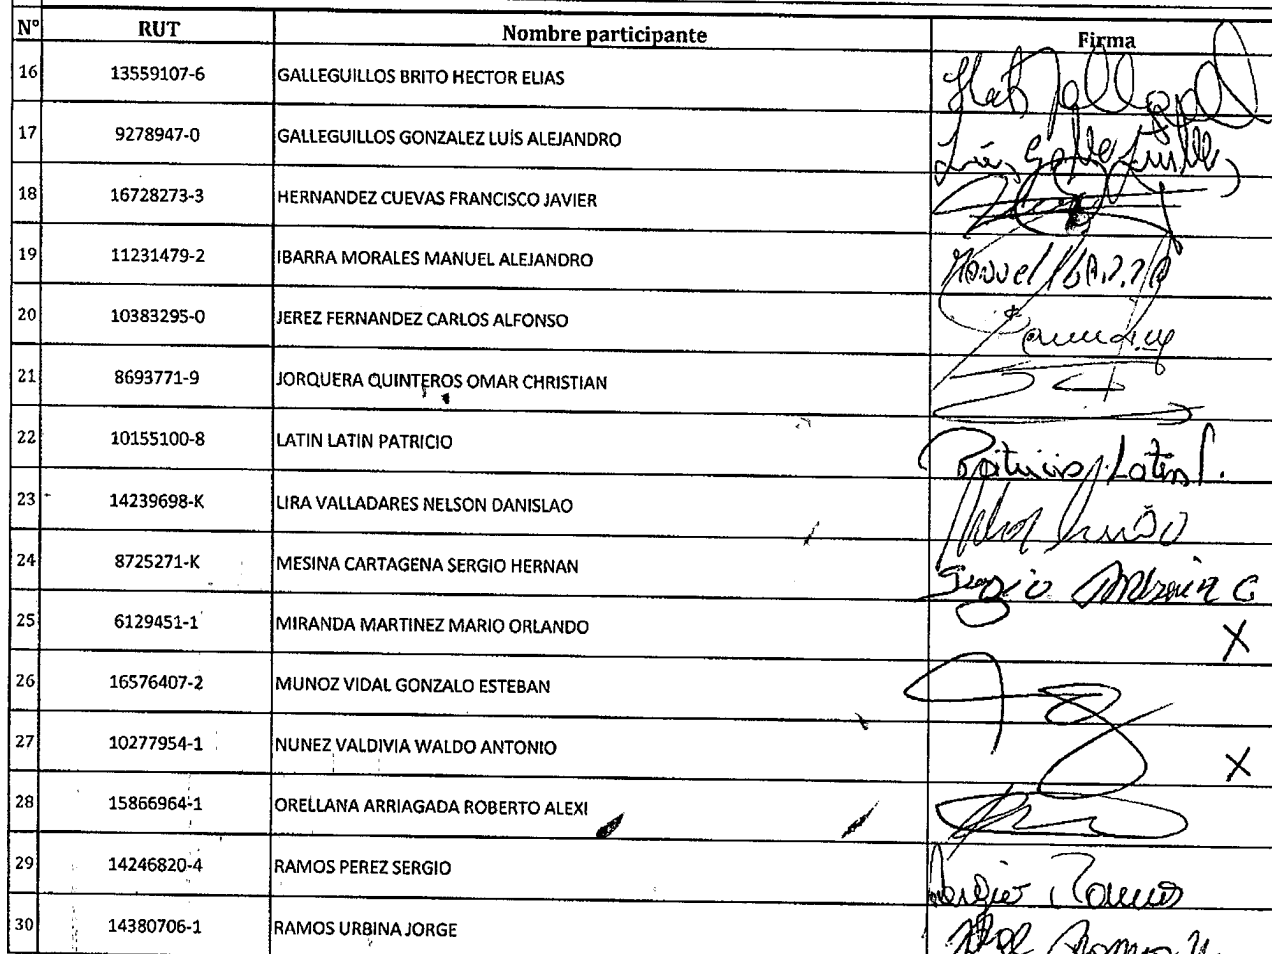 N° RUT Nombre participante Firma
16 13559107-6 GALLEGUILLOS BRITO HECTOR ELIAS
17 9278947-0 GALLEGUILLOS GONZALEZ LUÍS ALEJANDRO Luis
18 16728273-3 HERNANDEZ CUEVAS FRANCISCO JAVIER
19 11231479-2 IBARRA MORALES MANUEL ALEJANDRO Manuel Ibarra
20 10383295-0 JEREZ FERNANDEZ CARLOS ALFONSO
21 8693771-9 JORQUERA QUINTEROS OMAR CHRISTIAN
22 10155100-8 LATIN LATIN PATRICIO Patricio Latin L.
23 14239698-K LIRA VALLADARES NELSON DANISLAO
24 8725271-K MESINA CARTAGENA SERGIO HERNAN Sergio Mesina C
25 6129451-1 MIRANDA MARTINEZ MARIO ORLANDO X
26 16576407-2 MUNOZ VIDAL GONZALO ESTEBAN
27 10277954-1 NUNEZ VALDIVIA WALDO ANTONIO X
28 15866964-1 ORELLANA ARRIAGADA ROBERTO ALEXI
29 14246820-4 RAMOS PEREZ SERGIO Sergio Ramos
30 14380706-1 RAMOS URBINA JORGE